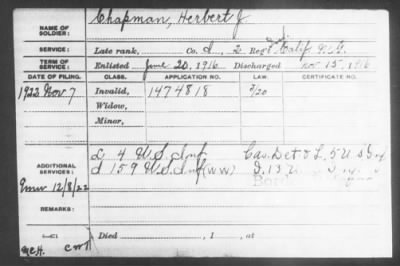 NAME OF SOLDIER: Chapman, Herbert J
SERVICE: Late rank, Co. d, 2 Reg't Inf Calif N.G.
TERM OF SERVICE: Enlisted June 20, 1916 Discharged Nov 15, 1916
DATE OF FILING. CLASS. APPLICATION NO. LAW. CERTIFICATE NO.
1922 Nov 7 Invalid, 1474818 7/20
Widow,
Minor,
ADDITIONAL SERVICES: L 4 U.S. Inf Cas. Det & L, 5 U S Inf
d 159 U.S. Inf (WW) D. 13 U
12/8/22
REMARKS:
Died , 1 , at